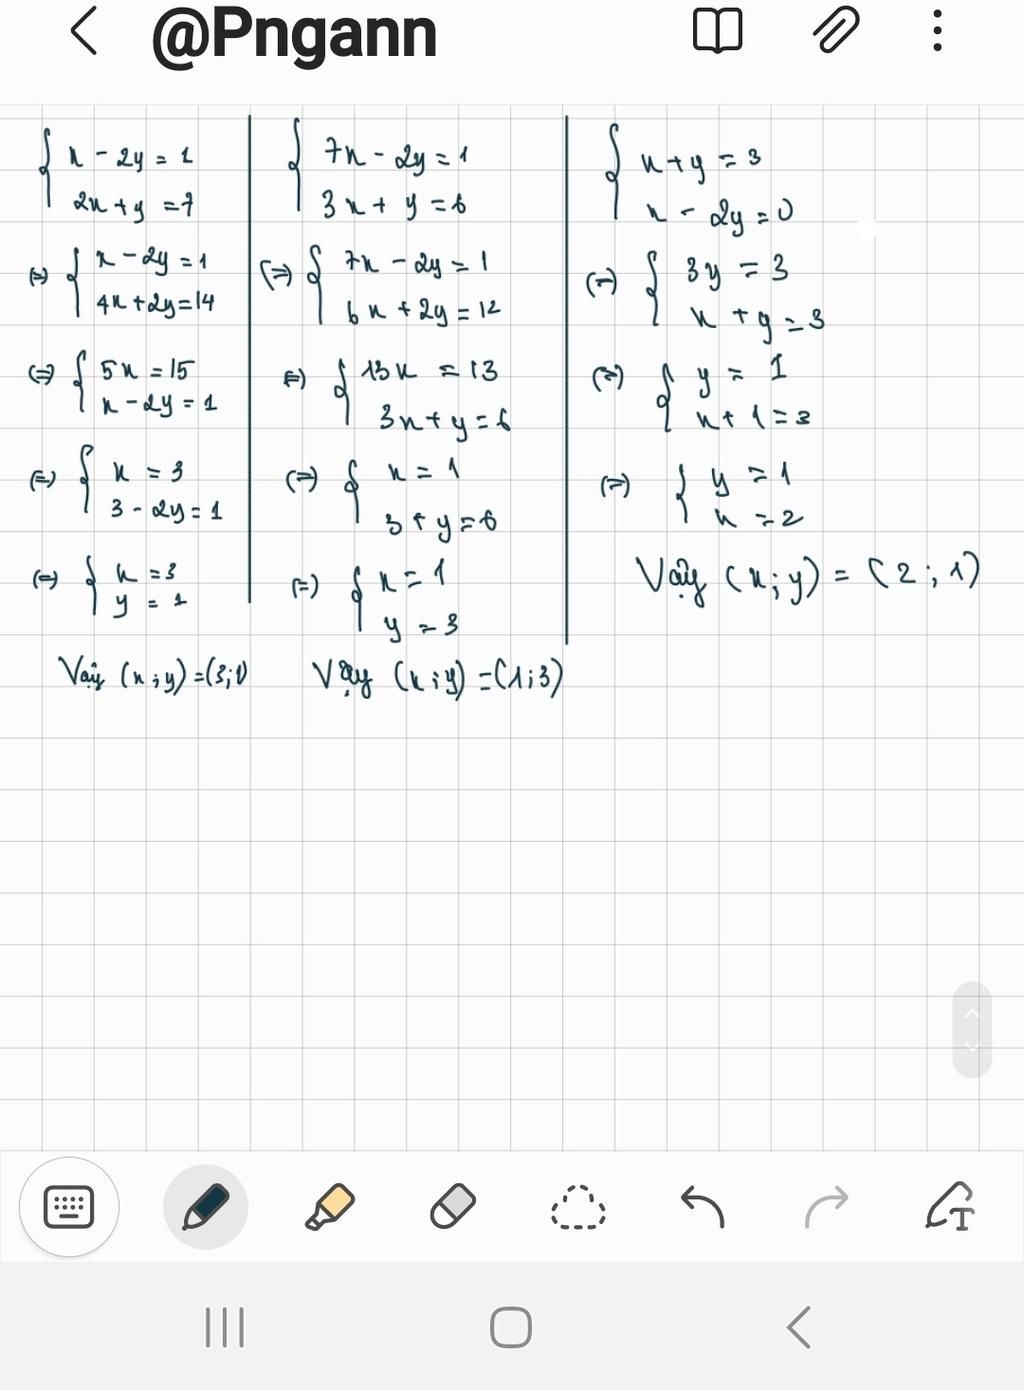 @Pngann
{ x - 2y = 1
2x + y = 7
(=) { x - 2y = 1
4x + 2y = 14
(=) { 5x = 15
x - 2y = 1
(=) { x = 3
3 - 2y = 1
(=) { x = 3
y = 1
Vậy (x; y) = (3; 1)
{ 7x - 2y = 1
3x + y = 6
(=) { 7x - 2y = 1
6x + 2y = 12
(=) { 13x = 13
3x + y = 6
(=) { x = 1
3 + y = 6
(=) { x = 1
y = 3
Vậy (x; y) = (1; 3)
{ x + y = 3
x - 2y = 0
(=) { 3y = 3
x + y = 3
(=) { y = 1
x + 1 = 3
(=) { y = 1
x = 2
Vậy (x; y) = (2; 1)
T